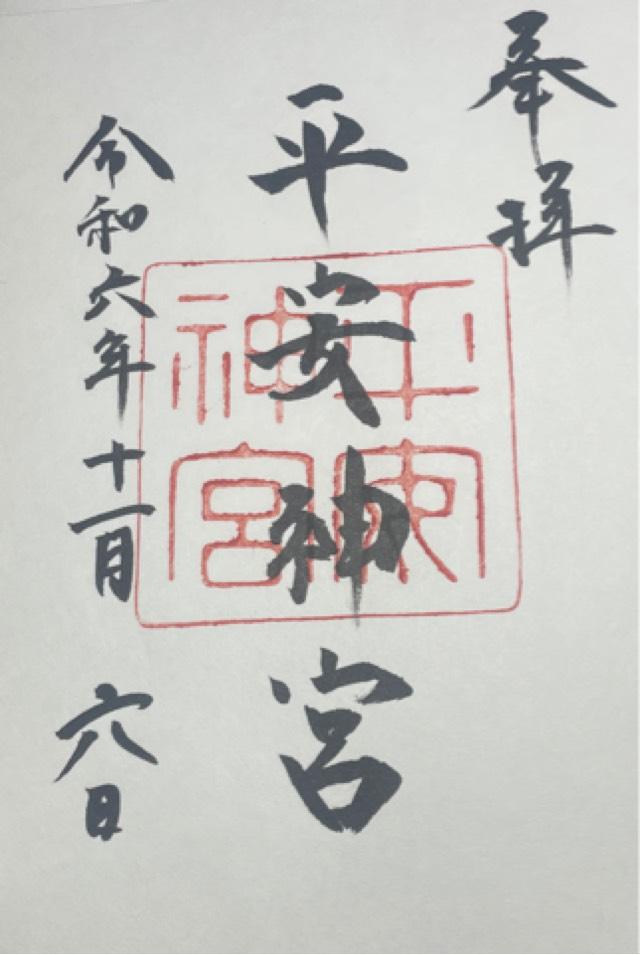 奉拝
平安神宮
令和六年十一月 六日
平安神宮